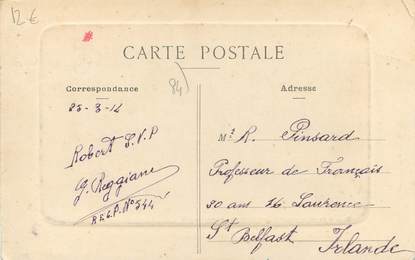 12 €
CARTE POSTALE
Correspondance
Adresse
84
25-3-12
Robert S.V.P
G. Reggiani
R.E.C.P. N° 544
Mr R. Pinsard
Professeur de Français
30 ans 26 Laurence
St
Belfast Irlande